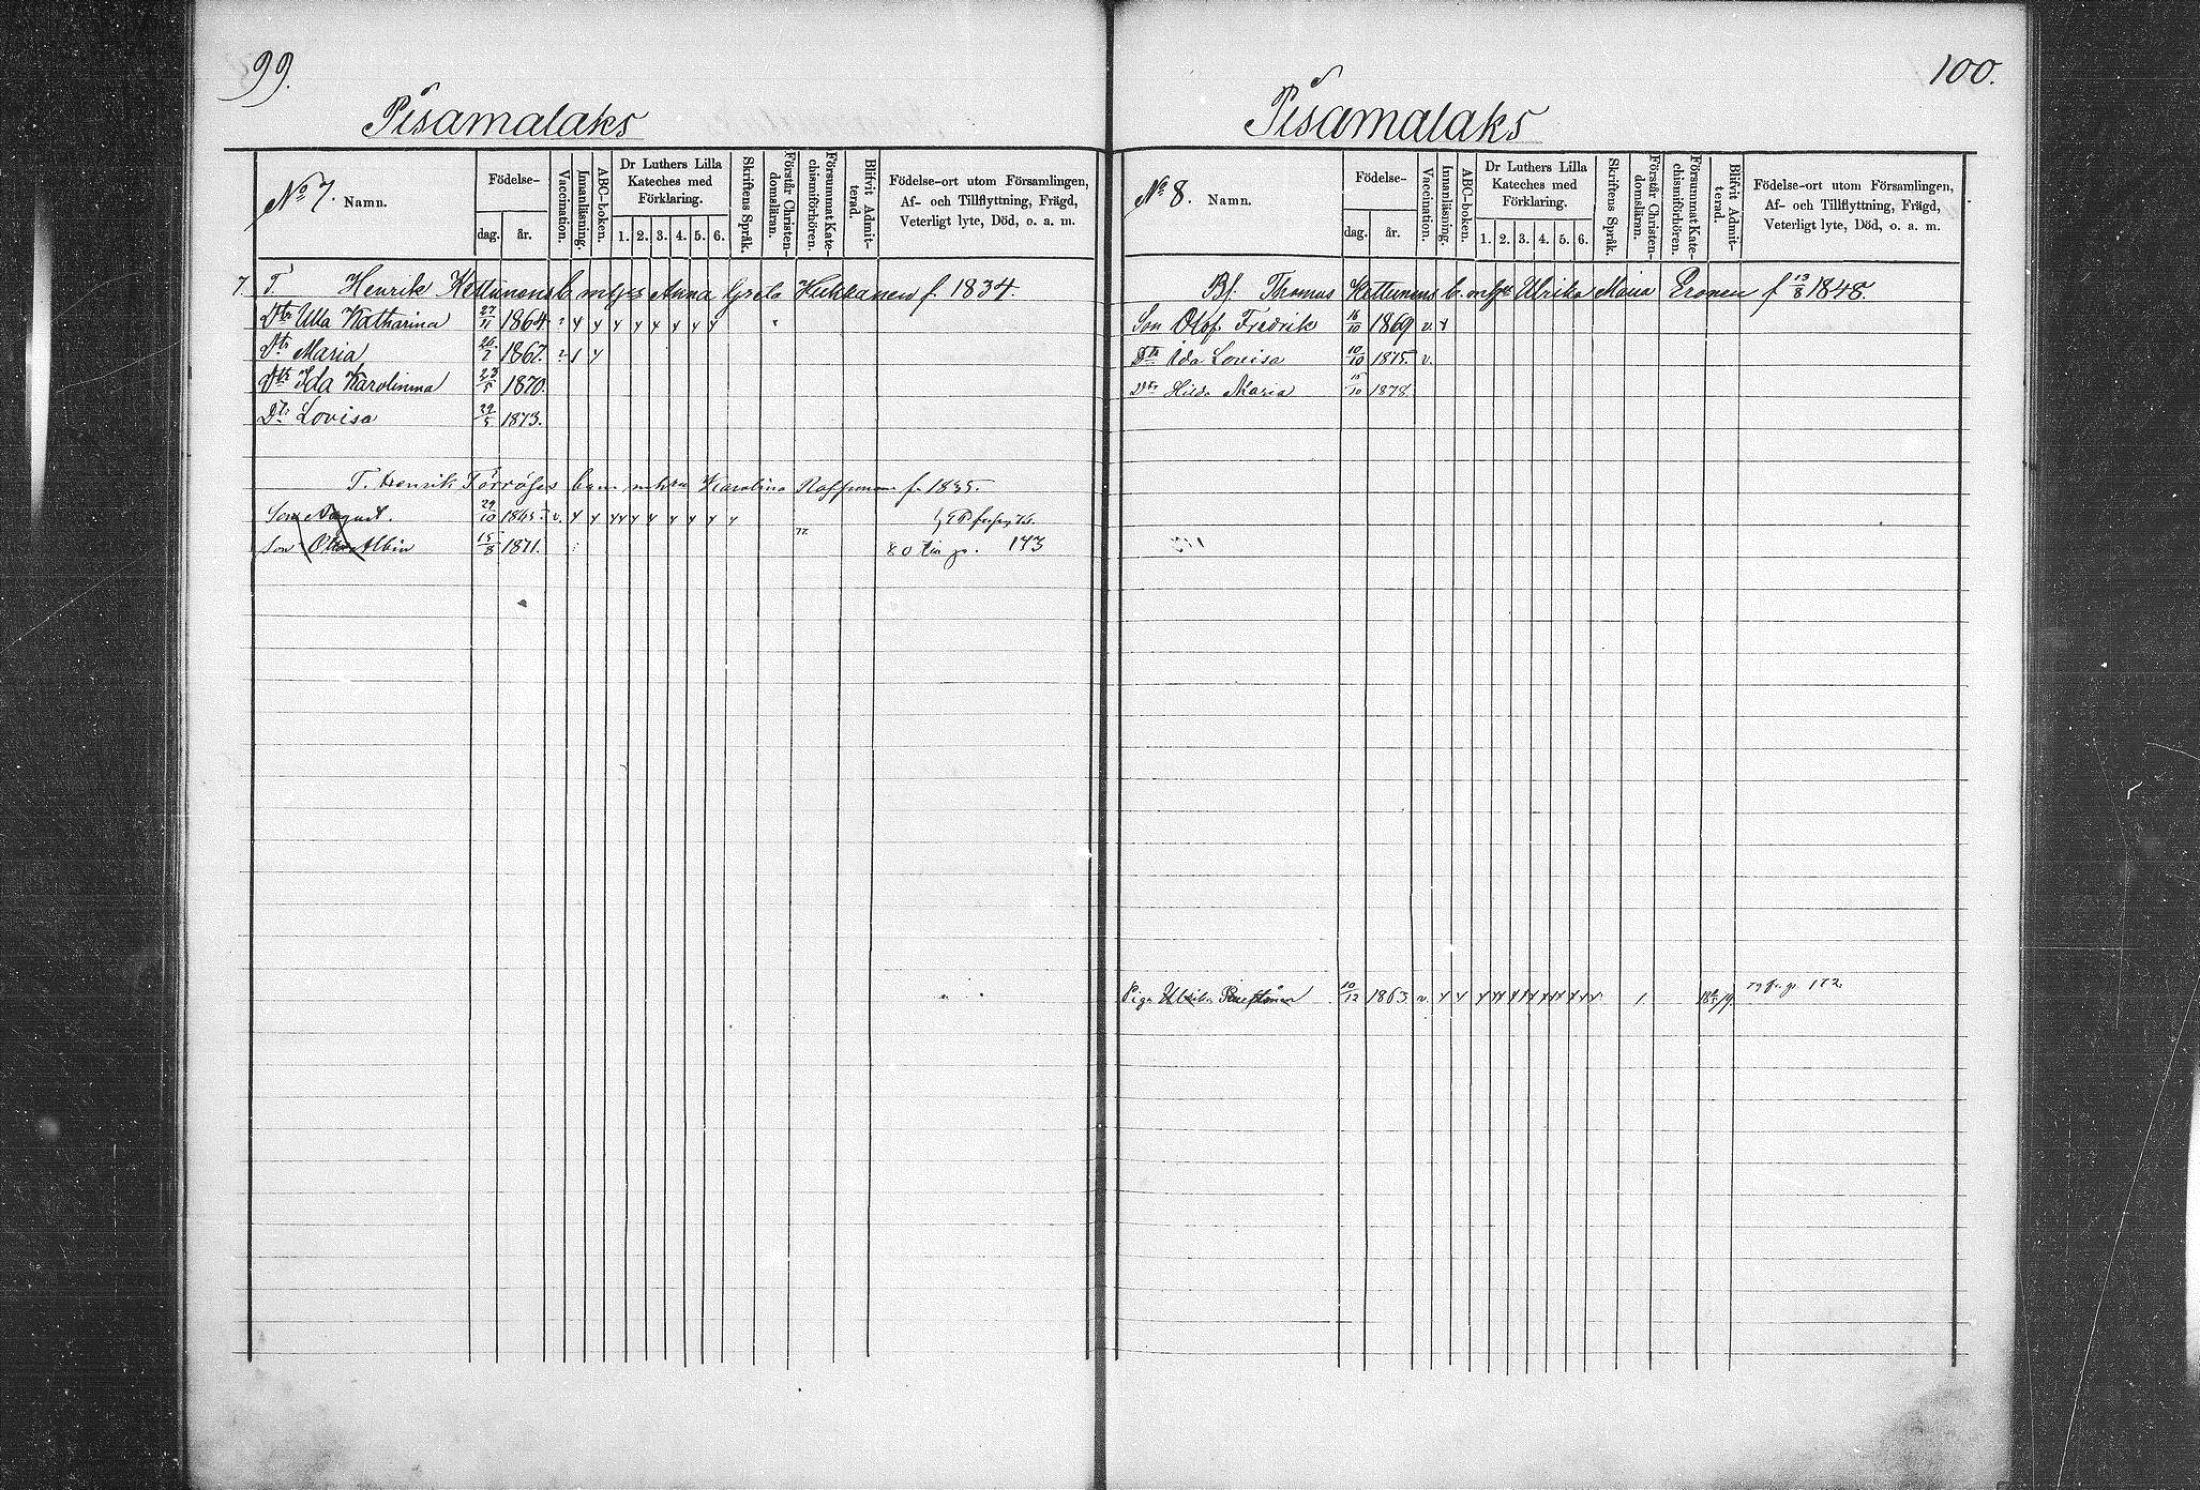 99.
Pisamalaks
No 7. Namn.
Födelse-
dag. år.
Vaccination.
Innanläsning.
ABC-boken.
Dr Luthers Lilla
Kateches med
Förklaring.
1. 2. 3. 4. 5. 6.
Skriftens Språk.
Förstår Christen-
domsläran.
Försummat Kate-
chismiförhören.
Blifvit Admit-
terad.
Födelse-ort utom Församlingen,
Af- och Tillflyttning, Frägd,
Veterligt lyte, Död, o. a. m.
7. T. Henrik Kettunens b. Anna Greta Hukkanen f. 1834.
Dtr Ulla Katharina 27/11 1864
Dtr Maria 26/7 1867.
Dtr Ida Karolinma 23/5 1870.
Dtr Lovisa 22/5 1873.
T. Henrik Törrönes barn Karolina f. 1835.
Son August. 29/10 1865. v.
Son Albin 15/8 1871.
80 p. 173
100.
Pisamalaks
No 8. Namn.
Födelse-
dag. år.
Vaccination.
Innanläsning.
ABC-boken.
Dr Luthers Lilla
Kateches med
Förklaring.
1. 2. 3. 4. 5. 6.
Skriftens Språk.
Förstår Christen-
domsläran.
Försummat Kate-
chismiförhören.
Blifvit Admit-
terad.
Födelse-ort utom Församlingen,
Af- och Tillflyttning, Frägd,
Veterligt lyte, Död, o. a. m.
Bf. Thomas Kettunens b. Ulrika Maria Eronen f 13/8 1848.
Son Olof Fredrik 16/10 1869 v.
Dtr Ida Lovisa 10/10 1875. v.
Dtr Hilda Maria 15/10 1878
Piga Ulrika 10/12 1863 v.